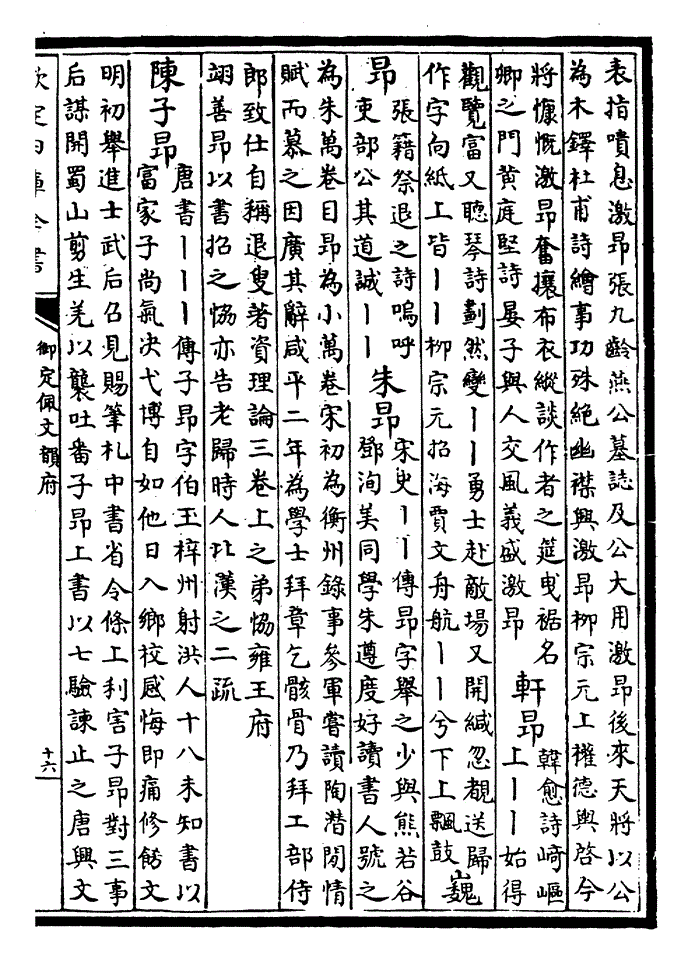 表指噴息激昂張九齡燕公墓誌及公大用激昂後來天將以公
為木鐸杜甫詩繪事功殊絕幽襟興激昂柳宗元上權德輿啓今
將慷慨激昂奮攘布衣縱談作者之筵曳裾名
卿之門黄庭堅詩晏子與人交風義盛激昂
軒昂
韓愈詩崎嶇
上丨丨始得
觀覽富又聽琴詩劃然變丨丨勇士赴敵場又開緘忽覩送歸
作字向紙上皆丨丨柳宗元招海賈文舟航丨丨兮下上飄鼓
巍
昂
張籍祭退之詩嗚呼
吏部公其道誠丨丨
朱昂
宋史丨丨傳昂字舉之少與熊若谷
鄧洵美同學朱遵度好讀書人號之
為朱萬卷目昂為小萬卷宋初為衡州錄事參軍嘗讀陶潛閒情
賦而慕之因廣其辭咸平二年為學士拜章乞骸骨乃拜工部侍
郎致仕自稱退叟著資理論三卷上之弟恊雍王府
翊善昂以書招之恊亦告老歸時人比漢之二疏
陳子昂
唐書丨丨丨傳子昂字伯玉梓州射洪人十八未知書以
富家子尚氣决弋博自如他日入鄉校感悔即痛修飭文
明初舉進士武后召見賜筆札中書省令條上利害子昂對三事
后謀開蜀山剪生羌以襲吐番子昂上書以七驗諫止之唐興文
欽定四庫全書
御定佩文韻府
十六